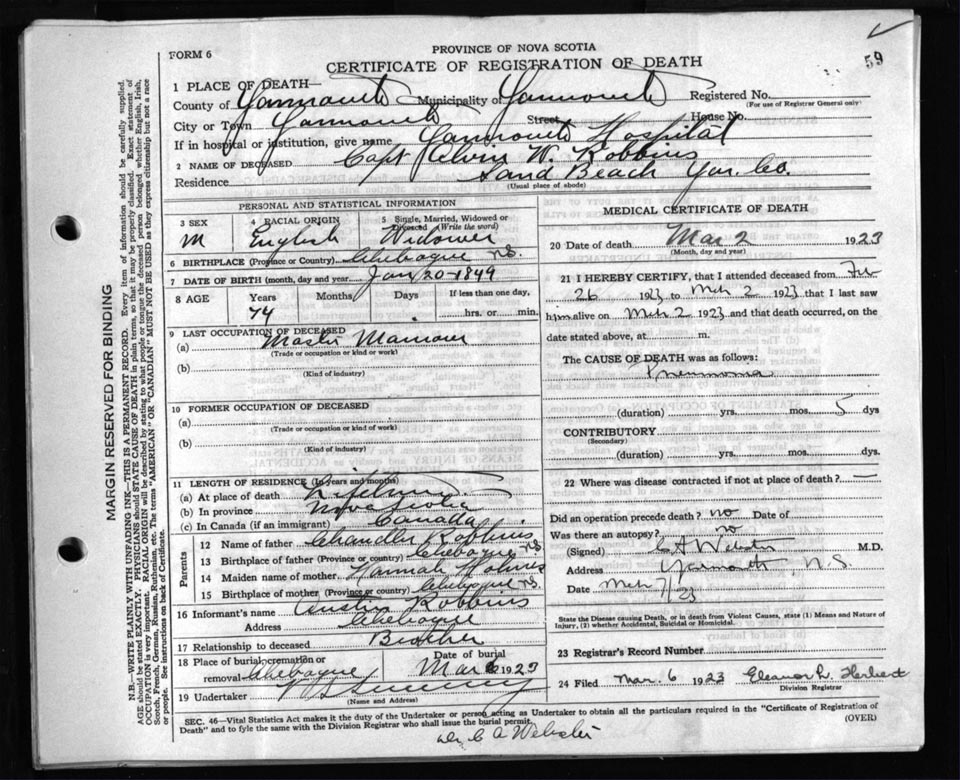 59
PROVINCE OF NOVA SCOTIA
FORM 6
CERTIFICATE OF REGISTRATION OF DEATH
1 PLACE OF DEATH—
County of Yarmouth Municipality of Yarmouth Registered No.
(For use of Registrar General only)
City or Town Yarmouth Street House No.
If in hospital or institution, give name Yarmouth Hospital
2 NAME OF DECEASED Capt Alvin W. Robbins
Residence Sand Beach Yar. Co.
(Usual place of abode)
PERSONAL AND STATISTICAL INFORMATION
3 SEX 4 RACIAL ORIGIN 5 Single, Married, Widowed or Divorced (Write the word)
M English Widower
6 BIRTHPLACE (Province or Country) Chebogue N.S.
7 DATE OF BIRTH (month, day and year) Jan 20-1849
8 AGE Years Months Days If less than one day,
74 hrs. or min.
9 LAST OCCUPATION OF DECEASED
(a) Master Mariner
(Trade or occupation or kind or work)
(b)
(Kind of industry)
10 FORMER OCCUPATION OF DECEASED
(a)
(Trade or occupation or kind or work)
(b)
(Kind of industry)
11 LENGTH OF RESIDENCE (In years and months)
(a) At place of death Lifetime
(b) In province Nova Scotia
(c) In Canada (if an immigrant) Canada
Parents
12 Name of father Chandler Robbins
13 Birthplace of father (Province or country) Chebogue N.S.
14 Maiden name of mother Hannah Holmes
15 Birthplace of mother (Province or country) Chebogue N.S.
16 Informant's name Austin Robbins
Address Chebogue
17 Relationship to deceased Brother
18 Place of burial, cremation or removal Chebogue Date of burial Mar 1923
19 Undertaker
(Name and Address)
MEDICAL CERTIFICATE OF DEATH
20 Date of death Mar 2 1923
(Month, day and year)
21 I HEREBY CERTIFY, that I attended deceased from Feb
26 1923 to Mch 2 1923 that I last saw
him alive on Mch 2 1923 and that death occurred, on the
date stated above, at m.
The CAUSE OF DEATH was as follows:
Pneumonia
(duration) yrs. mos. 5 dys
CONTRIBUTORY
(Secondary)
(duration) yrs. mos. dys.
22 Where was disease contracted if not at place of death? —
Did an operation precede death? no Date of
Was there an autopsy? no
(Signed) C A Webster M.D.
Address Yarmouth, N.S.
Date Mch 7/23
State the Disease causing Death, or in death from Violent Causes, state (1) Means and Nature of
Injury, (2) whether Accidental, Suicidal or Homicidal.
23 Registrar's Record Number
24 Filed Mar. 6 1923 Eleanor L. Herbert
Division Registrar
SEC. 46—Vital Statistics Act makes it the duty of the Undertaker or person acting as Undertaker to obtain all the particulars required in the "Certificate of Registration of
Death" and to fyle the same with the Division Registrar who shall issue the burial permit. (OVER)
Dr C A Webster
MARGIN RESERVED FOR BINDING
N.B.—WRITE PLAINLY WITH UNFADING INK—THIS IS A PERMANENT RECORD. Every item of information should be carefully supplied.
AGE should be stated EXACTLY. PHYSICIANS should STATE CAUSE OF DEATH in plain terms, so that it may be properly classified. Exact statement of
OCCUPATION is very important. RACIAL ORIGIN will be described by stating to what people or tongue the deceased person belonged whether English, Irish,
Scotch, French, German, Russian, Ruthenian, etc. The terms "AMERICAN" OR "CANADIAN" MUST NOT BE USED as they express citizenship but not a race
or people. See instructions on back of Certificate.